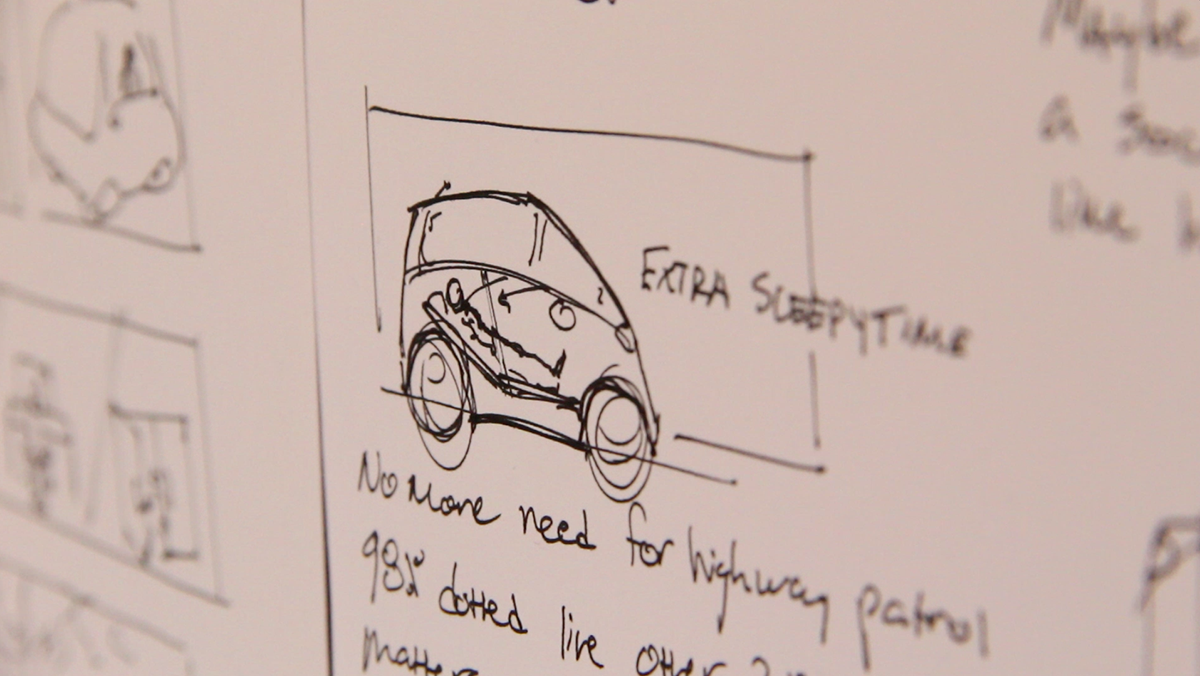 EXTRA SLEEPYTIME
No More need for highway patrol
98% dotted line other
Matters
Maybe
a
like